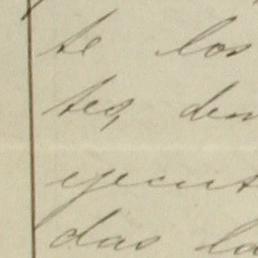 te los
tes, dem
ejecut
das la